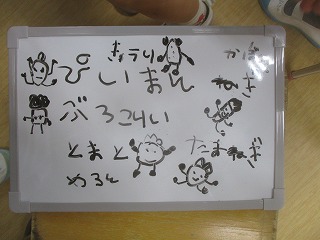 きゅうり
ぴいまん
ねぎ
ぶろこりい
とまと
たまねぎ
めろん